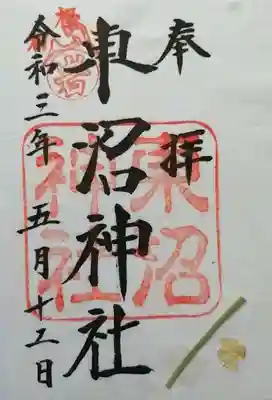 奉拝
東沼神社
東沼
神社
令和三年五月十五日